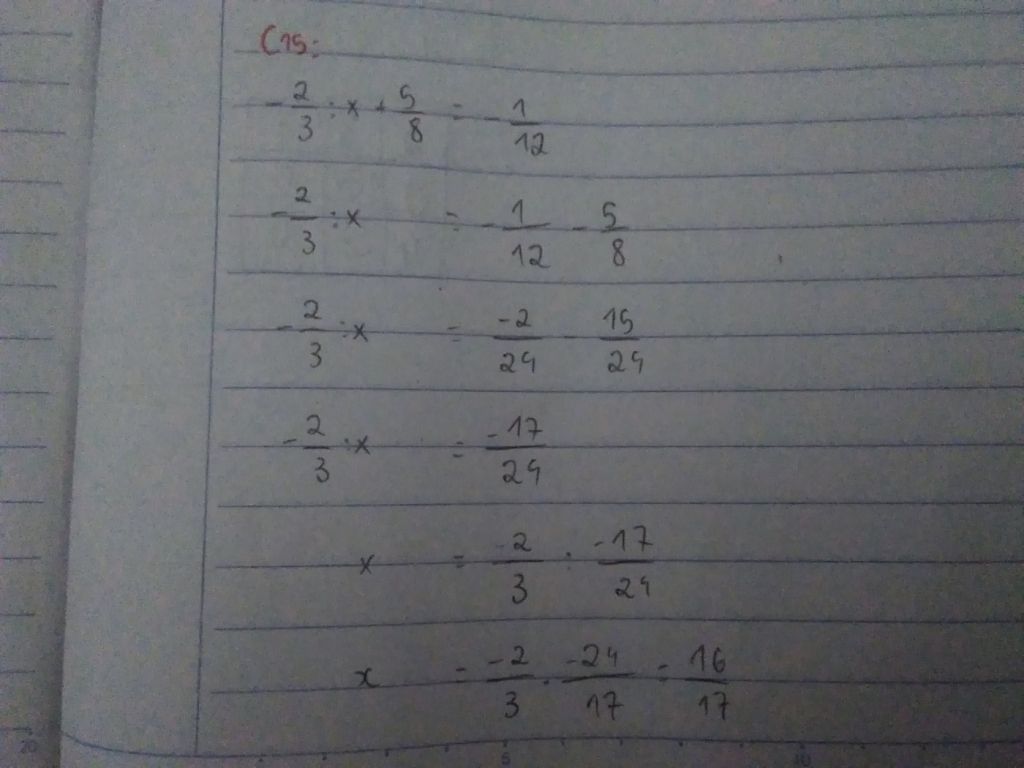 C15:
-2/3 : x + 5/8 = -1/12
-2/3 : x = -1/12 - 5/8
-2/3 : x = -2/24 - 15/24
-2/3 : x = -17/24
x = -2/3 : -17/24
x = -2/3 . -24/17 = 16/17
20 5 10